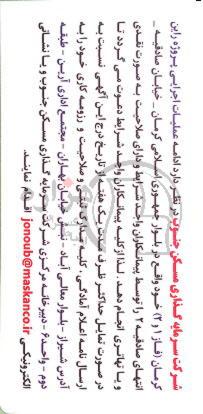 شرکت سرمایه گذاری مسکن جنوب در نظر دارد ادامه عملیات اجرایی پروژه راین
کرمان (فاز ۱ و ۲) خود واقع در بلوار جمهوری اسلامی کرمان _ خیابان صادقیه _
انتهای صادقیه ۲ را توسط پیمانکاران واجد شرایط و دارای صلاحیت به صورت نقدی
و یا تهاتری انجام دهد . لذا ازکلیه پیمانکاران واجد شرایط دعوت می گردد تا
در صورت تمایل حداکثر ظرف مدت یک هفته از تاریخ درج این آگهی نسبت به
ارسال نامه اعلام آمادگی . کلیه مدارک ثبتی و صلاحیت و رزومه کاری خود به
آدرس شیراز - بلوار معالی آباد - نبش خیابان بهاران - مجتمع اداری آرین - طبقه
دوم - واحد۶ - دبیرخانه مرکزی شرکت سرمایه گذاری مسکن جنوب و یا نشانی
الکترونیکی jonoub@maskanco.ir اقدام نمایند.